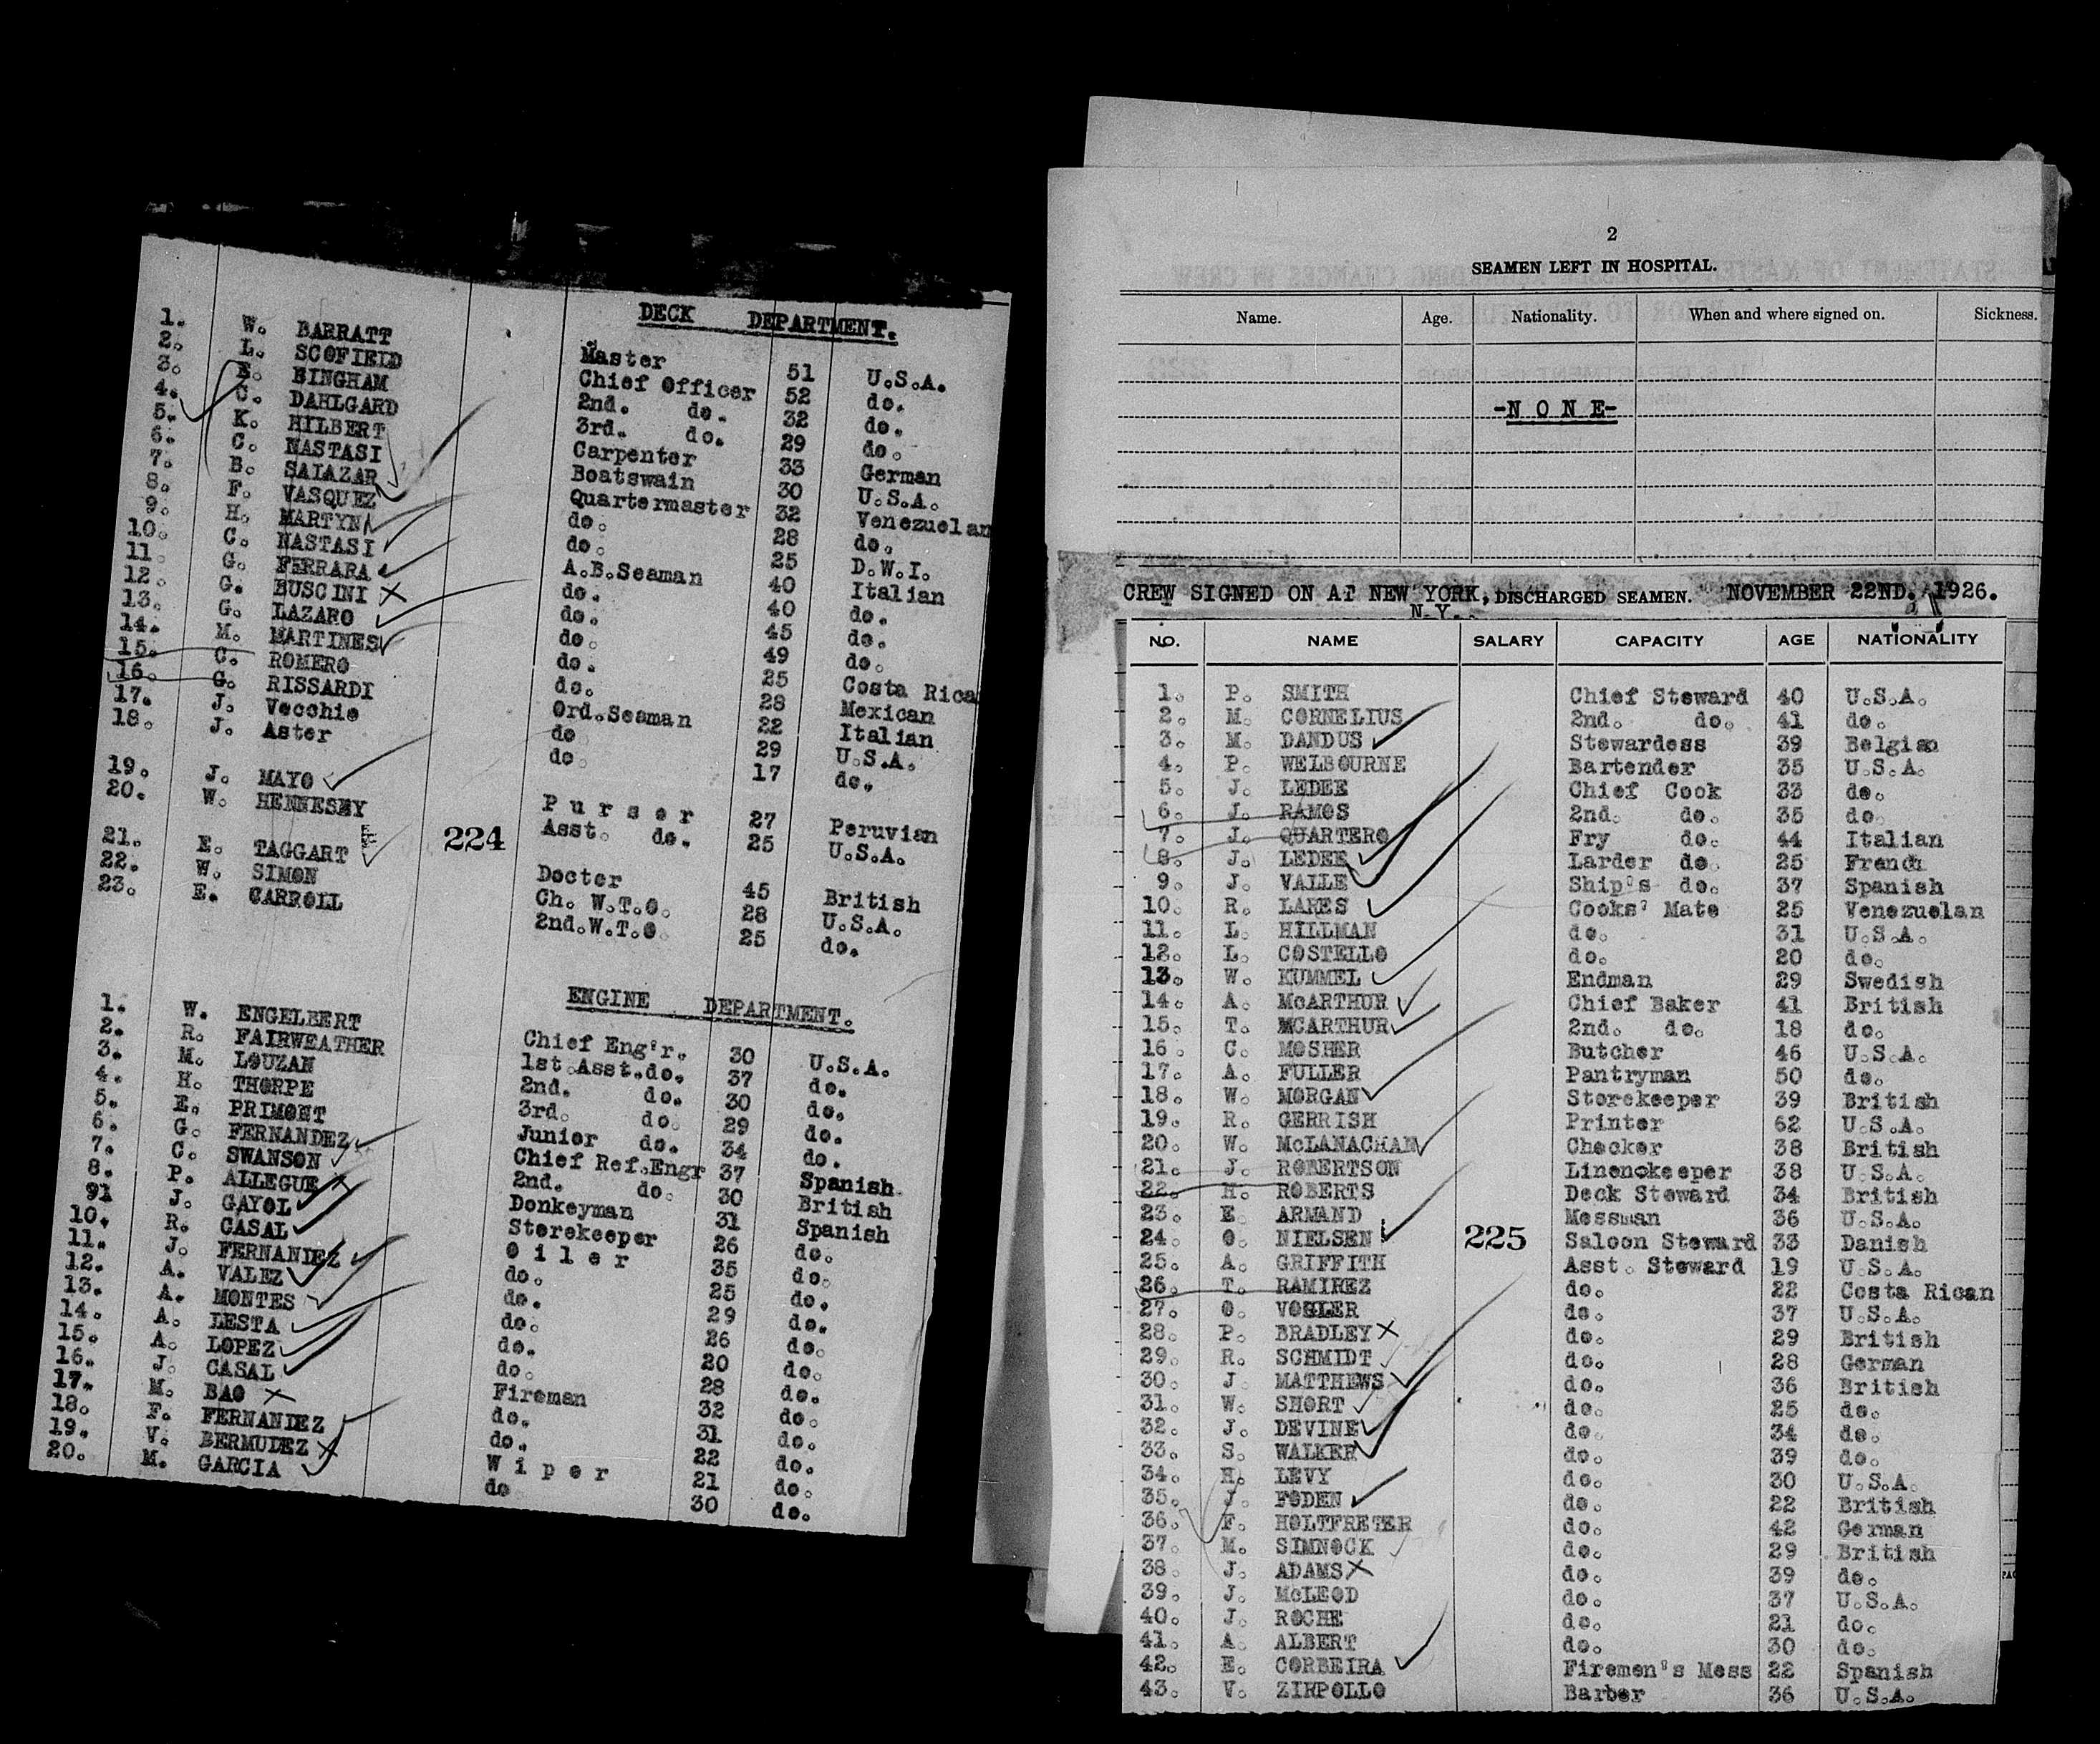 DECK DEPARTMENT.
1. W. BARRATT Master 51 U.S.A.
2. L. SCOFIELD Chief Officer 52 do.
3. E. BINGHAM 2nd. do. 32 do.
4. C. DAHLGARD 3rd. do. 29 do.
5. K. HILBERT Carpenter 33 German
6. C. NASTASI Boatswain 30 U.S.A.
7. B. SALAZAR Quartermaster 32 Venezuelan
8. F. VASQUEZ do. 28 do.
9. H. MARTYN do. 25 D.W.I.
10. C. NASTASI A.B.Seaman 40 Italian
11 G. FERRARA do. 40 do.
12. G. BUSCINI do. 45 do.
13. G. LAZARO do. 49 do.
14. M. MARTINES do. 25 Costa Rica
15. C. ROMERO do. 28 Mexican
16. G. RISSARDI Ord.Seaman 22 Italian
17. J. Vecchie do 29 U.S.A.
18. J. Aster do. 17 do.
19. J. MAYO Purser 27 Peruvian
20. W. HENNESEY Asst. do. 25 U.S.A.
21. E. TAGGART Docter 45 British
224
22. W. SIMON Ch. W.T.O. 28 U.S.A.
23. E. CARROLL 2nd.W.T.O. 25 do.
ENGINE DEPARTMENT.
1. W. ENGELBERT Chief Eng'r. 30 U.S.A.
2. R. FAIRWEATHER 1st.Asst.do. 37 do.
3. M. LOUZAN 2nd. do. 30 do.
4. H. THORPE 3rd. do. 29 do.
5. E. PRIMONT Junior do. 34 do.
6. G. FERNANDEZ Chief Ref.Engr 37 Spanish
7. C. SWANSON 2nd. do. 30 British
8. P. ALLEGUE Donkeyman 31 Spanish
91 J. GAYOL Storekeeper 26 do.
10. R. CASAL Oiler 35 do.
11. J. FERNANDEZ do. 25 do.
12. A. VALEZ do. 29 do.
13. A. MONTES do. 26 do.
14. A. LESTA do. 20 do.
15. A. LOPEZ do. 28 do.
16. J. CASAL Fireman 32 do.
17. M. BAO do. 31 do.
18. F. FERNANDEZ do. 22 do.
19. V. BERMUDEZ Wiper 21 do.
20. M. GARCIA do 30 do.
2
SEAMEN LEFT IN HOSPITAL.
Name. Age. Nationality. When and where signed on. Sickness.
-NONE-
CREW SIGNED ON AT NEW YORK, DISCHARGED SEAMEN. NOVEMBER 22ND. 1926.
N.Y.
NO. NAME SALARY CAPACITY AGE NATIONALITY
1. P. SMITH Chief Steward 40 U.S.A.
2. M. CORNELIUS 2nd. do. 41 do.
3. M. DANDUS Stewardess 39 Belgian
4. P. WELBOURNE Bartender 35 U.S.A.
5. J. LEDEE Chief Cook 33 do.
6. J. RAMOS 2nd. do. 35 do.
7. J. QUARTERO Fry do. 44 Italian
8. J. LEDEE Larder do. 25 French
9. J. VALLE Ship's do. 37 Spanish
10. R. LARES Cooks' Mate 25 Venezuelan
11. L. HILLMAN do. 31 U.S.A.
12. L. COSTELLO do. 20 do.
13. W. KUMMEL Endman 29 Swedish
14. A. McARTHUR Chief Baker 41 British
15. T. MCARTHUR 2nd. do. 18 do.
16. C. MOSHER Butcher 46 U.S.A.
17. A. FULLER Pantryman 50 do.
18. W. MORGAN Storekeeper 39 British
19. R. GERRISH Printer 62 U.S.A.
20. W. McLANACHAN Checker 38 British
21. J. ROBERTSON Linenokeeper 38 U.S.A.
22. H. ROBERTS Deck Steward 34 British
23. E. ARMAND Messman 36 U.S.A.
24. O. NIELSEN 225 Saloon Steward 33 Danish
25. A. GRIFFITH Asst. Steward 19 U.S.A.
26. T. RAMIREZ do. 22 Costa Rican
27. O. VOGLER do. 37 U.S.A.
28. P. BRADLEY do. 29 British
29. R. SCHMIDT do. 28 German
30. J. MATTHEWS do. 36 British
31. W. SHORT do. 25 do.
32. J. DEVINE do. 34 do.
33. S. WALKER do. 39 do.
34. H. LEVY do. 30 U.S.A.
35. J. FODEN do. 22 British
36. F. HOLTFRETER do. 42 German
37. M. SIMNOCK do. 29 British
38. J. ADAMS do. 39 do.
39. J. McLEOD do. 37 U.S.A.
40. J. ROCHE do. 21 do.
41. A. ALBERT do. 30 do.
42. E. CORBEIRA Firemen's Mess 22 Spanish
43. V. ZIRPOLLO Barber 36 U.S.A.